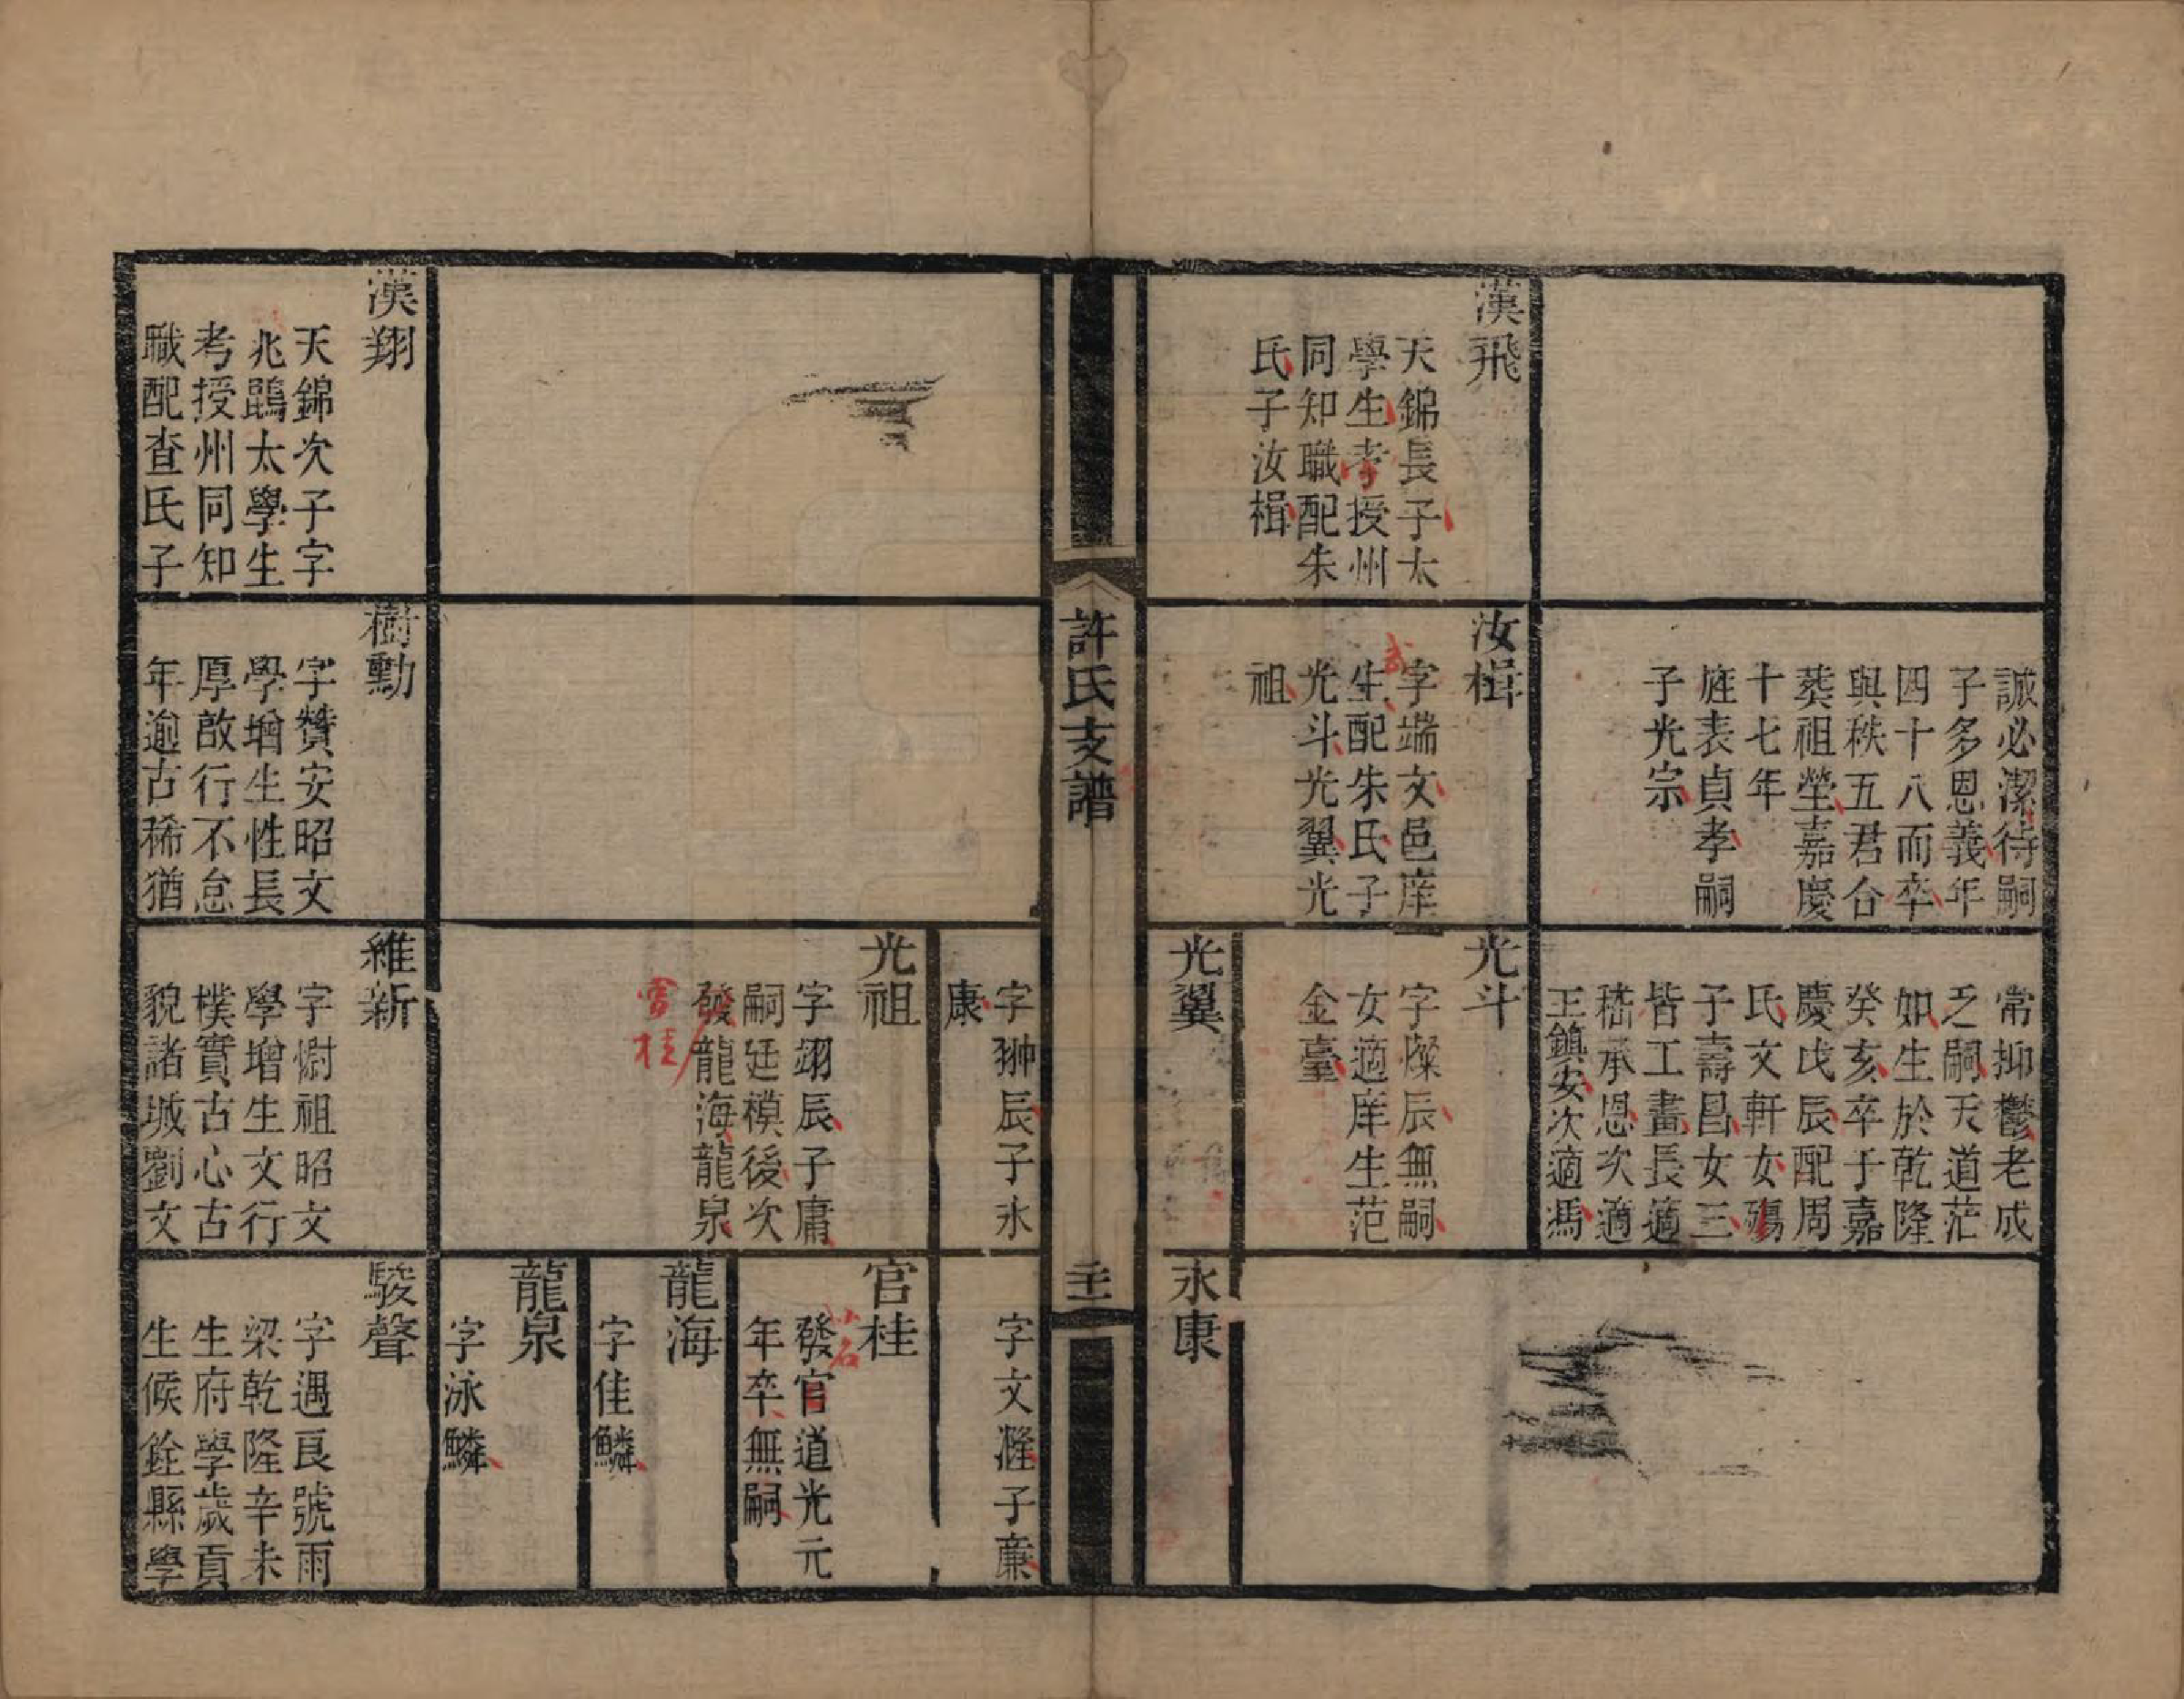 誠必潔待嗣
子多恩義年
四十八而卒
與秩五君合
葬祖塋嘉慶
十七年
旌表貞孝嗣
子光宗
常抑鬱老成
乏嗣天道茫
如生於乾隆
癸亥卒于嘉
慶戊辰配周
氏文軒女殤
子壽昌女三
皆工畫長適
嵇承恩次適
王鎮安次適馮
漢飛
天錦長子太
學生考授州
同知職配朱
氏子汝楫
汝楫
字端文邑庠
生配朱氏子
光斗光翼光
祖
光斗
字燦辰無嗣
女適庠生范
金臺
光翼
永康
許氏支譜
字翀辰子永
康
字文漋子廉
光祖
字翊辰子庸
嗣廷模後次
發龍海龍泉
官桂
官桂
小名
發官道光元
年卒無嗣
龍海
字佳鱗
龍泉
字泳鱗
漢翔
天錦次子字
兆鵾太學生
考授州同知
職配查氏子
樹勳
字贊安昭文
學增生性長
厚啟行不怠
年逾古稀猶
維新
字尉祖昭文
學增生文行
樸實古心古
貌諸城劉文
駿聲
字遇良號雨
梁乾隆辛未
生府學歲貢
生候銓縣學